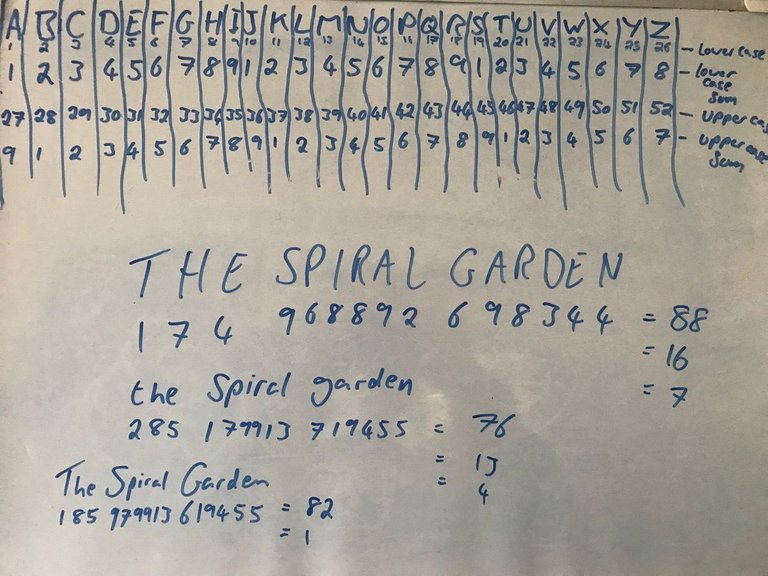 A B C D E F G H I J K L M N O P Q R S T U V W X Y Z
1 2 3 4 5 6 7 8 9 10 11 12 13 14 15 16 17 18 19 20 21 22 23 24 25 26 - lower case
1 2 3 4 5 6 7 8 9 1 2 3 4 5 6 7 8 9 1 2 3 4 5 6 7 8 - lower case sum
27 28 29 30 31 32 33 34 35 36 37 38 39 40 41 42 43 44 45 46 47 48 49 50 51 52 - upper cas
9 1 2 3 4 5 6 7 8 9 1 2 3 4 5 6 7 8 9 1 2 3 4 5 6 7 - upper case sum
THE SPIRAL GARDEN
1 7 4 968892 698344 = 88
= 16
= 7
the spiral garden
285 179913 719455 = 76
= 13
= 4
The Spiral Garden
185 979913 619455 = 82
= 1